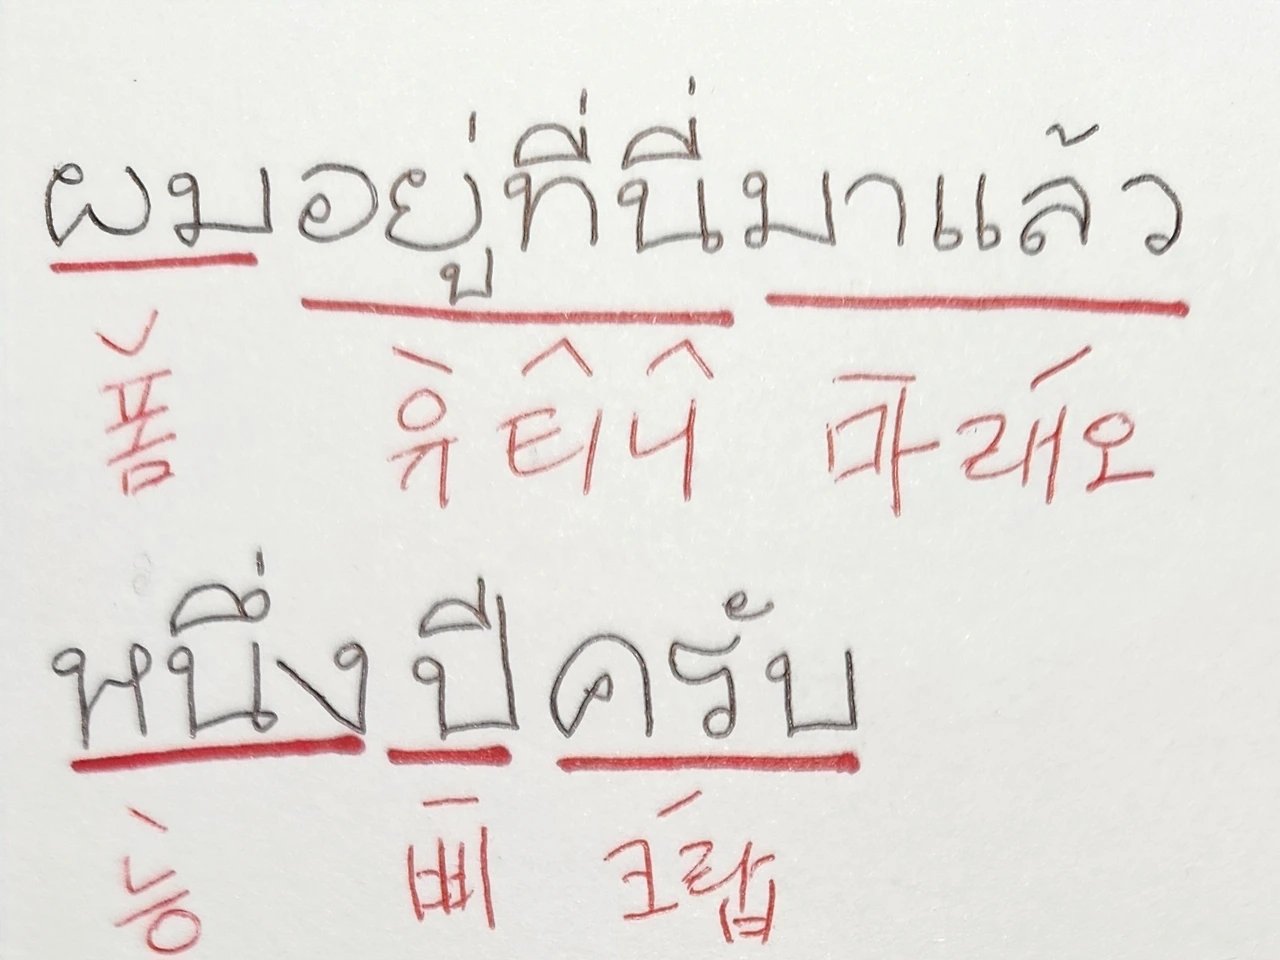 ผมอยู่ที่นี่มาแล้ว
폼 유 티 니 마 래오
หนึ่ง ปี ครับ
능 삐 크랍